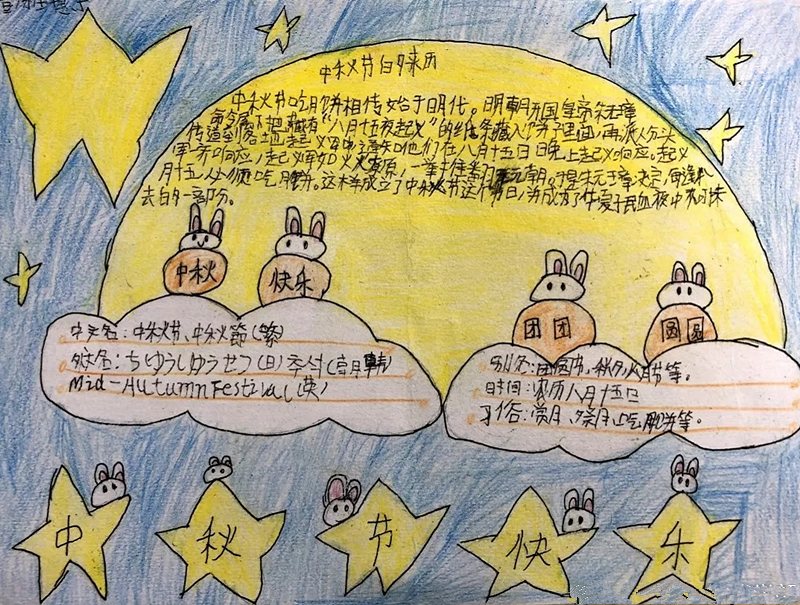 中秋节的来历
中秋节吃月饼相传始于明代。明朝开国皇帝朱元璋
命令属下把藏有"八月十五夜起义"的纸条藏入饼子里面,再派人分头
传送到各地起义军中,通知他们在八月十五日晚上起义响应。起义
军齐响应,起义军如火燎原,一举推翻元朝。于是朱元璋决定,每逢八
月十五,必须吃月饼。这样成立了中秋节这个节日,并成为了华夏子民血液中不可抹
去的一部份。
中秋
快乐
团团
圆圆
中文名:中秋节、中秋節(繁)
外文名:ちゆうしゆうせつ(日)
Mid-Autumn Festival(英)
别名:团圆节、秋夕、八月节等。
时间:农历八月十五日
习俗:赏月、祭月、吃月饼等。
中
秋
节
快
乐